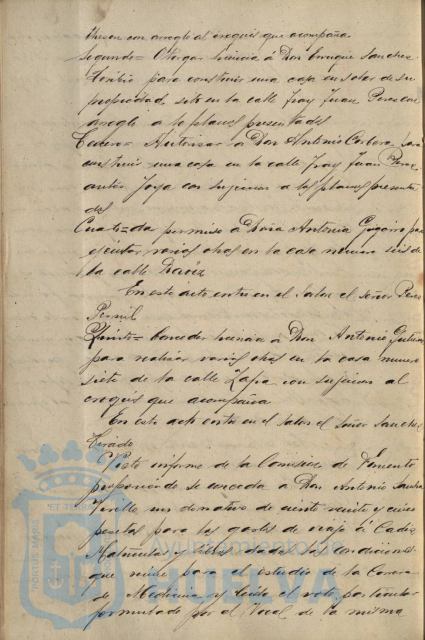 con arreglo al croquis que acompaña
Segundo = Otorgar licencia á Don Enrique Sanchez
Toribio para construir una casa en solar de su
propiedad, sito en la calle Fray Juan Perez con
arreglo a los planos presentados
Tercero = Autorizar a Don Antonio Corbera para
construir una casa en la calle Fray Juan Perez
antes Joya con sujecion a los planos presenta
dos
Cuarto = da permiso a Doña Antonia para
ejecutar varias obras en la casa numero seis de
la calle Daoiz
En este acto entra en el Salon el Señor Perez
Quinto = Conceder licencia á Don Antonio
para realizar varias obras en la casa numero
siete de la calle Zapia con sujecion al
croquis que acompaña
En este acto entra en el Salon el Señor Sanchez
Tirado
Visto informe de la Comision de Fomento
proponiendo se conceda á Don Antonio Sanchez
un donativo de ciento veinte y cinco
pesetas para los gastos de viaje á Cadiz
Matriculas y libros dadas las condiciones
que reune para el estudio de la Carrera
de Medicina y leido el voto particular
formulado por el Vocal de la misma
Ayuntamiento de
HUELVA
PORTUS MARIS
ET TERRAE